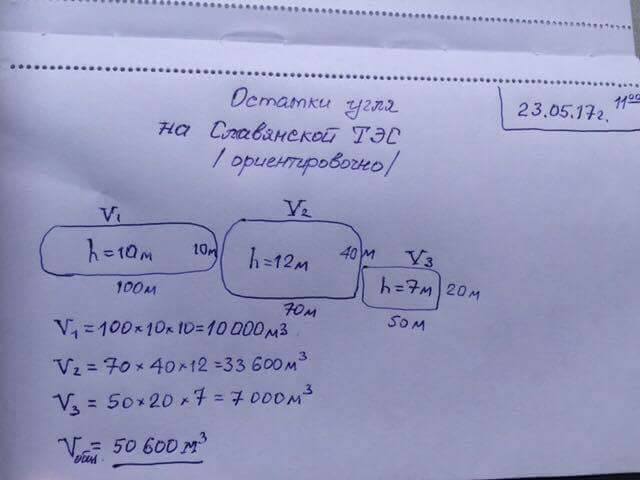 Остатки угля
на Славянской ТЭС
/ориентировочно/
23.05.17г. 11⁰⁰
V₁
h=10м
10м
100м
V₂
h=12м
40м
70м
V₃
h=7м
20м
50м
V₁=100×10×10=10 000м3
V₂=70×40×12=33 600м³
V₃=50×20×7=7 000м³
Vобщ=50 600м³